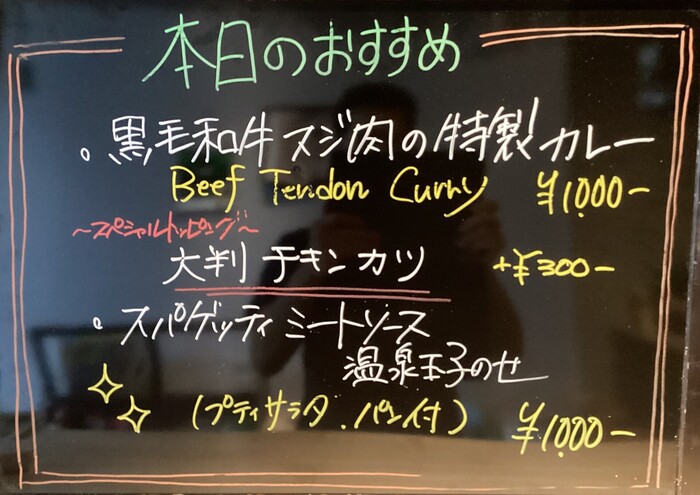 本日のおすすめ
。黒毛和牛スジ肉の特製カレー
Beef Tendon Curry ¥1.000-
～スペシャルトッピング～
大判チキンカツ +¥300-
。スパゲッティミートソース
温泉玉子のせ
(プティサラダ.パン付) ¥1.000-